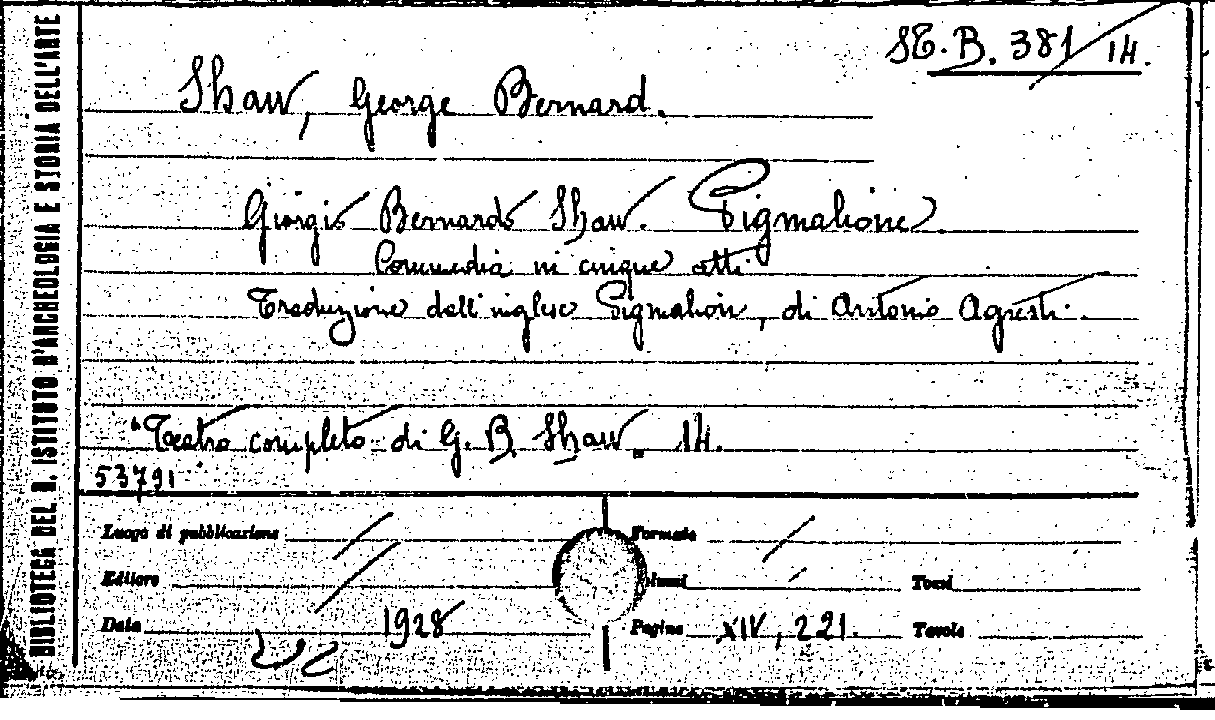 BIBLIOTECA DEL R. ISTITUTO D'ARCHEOLOGIA E STORIA DELL'ARTE
ST. B. 381/14.
Shaw, George Bernard.
Giorgio Bernardo Shaw. Pigmalione.
Commedia in cinque atti.
Traduzione dall'inglese Pigmalion, di Antonio Agresti.
"Teatro completo di G. B. Shaw" 14.
53791
Luogo di pubblicazione // Formato /
Editore Tomi
Data 1928 Pagine XIV, 221. Tavole